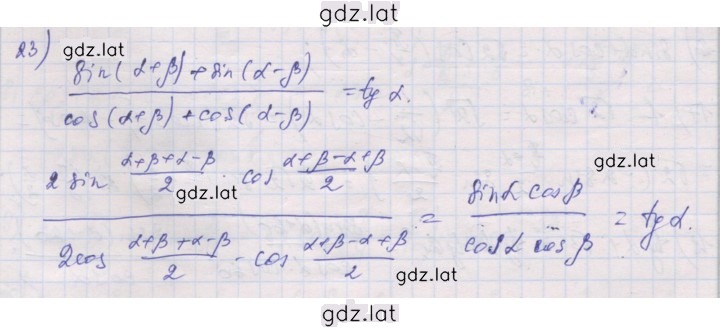 gdz.lat
23)
gdz.lat
sin(α+β)+sin(α-β) / cos(α+β)+cos(α-β) = tg α.
gdz.lat
2 sin (α+β+α-β)/2 · cos (α+β-α+β)/2 / 2cos (α+β+α-β)/2 · cos (α+β-α+β)/2 = sinα cosβ / cosα cos β = tgα.
gdz.lat
gdz.lat
gdz.lat